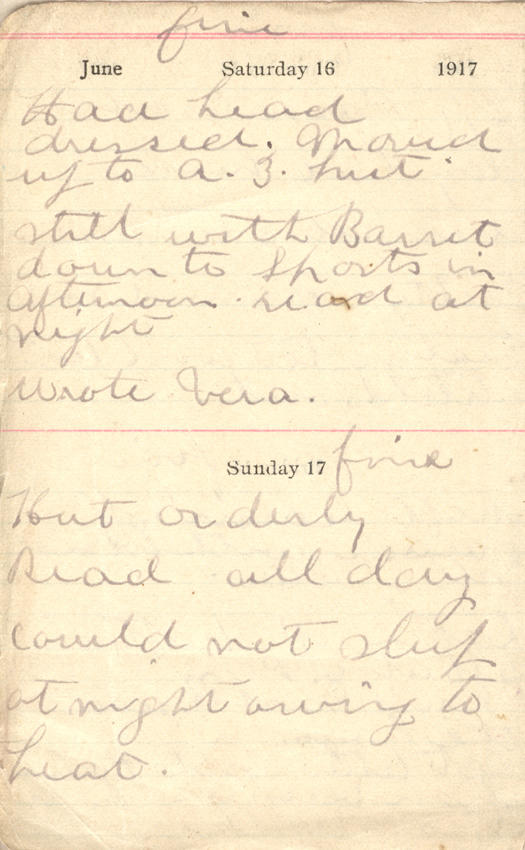 fine
June Saturday 16 1917
Had head
dressed. Moved
up to A. 3. hut
still with Barret
down to Sports in
afternoon. read at
night
Wrote Vera.
Sunday 17 fine
Hut orderly
Read all day
could not sleep
at night owing to
heat.